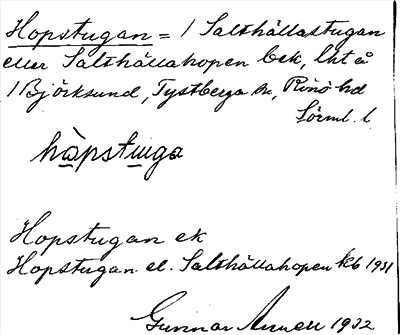 Hopstugan = 1 Salthällastugan
eller Salthällahopen bek, lht å
1 Björksund, Tystberga sn, Rönö hd
Sörml. l
håpstuga
Hopstugan ek
Hopstugan el. Salthällahopen kb 1931
Gunnar 1932